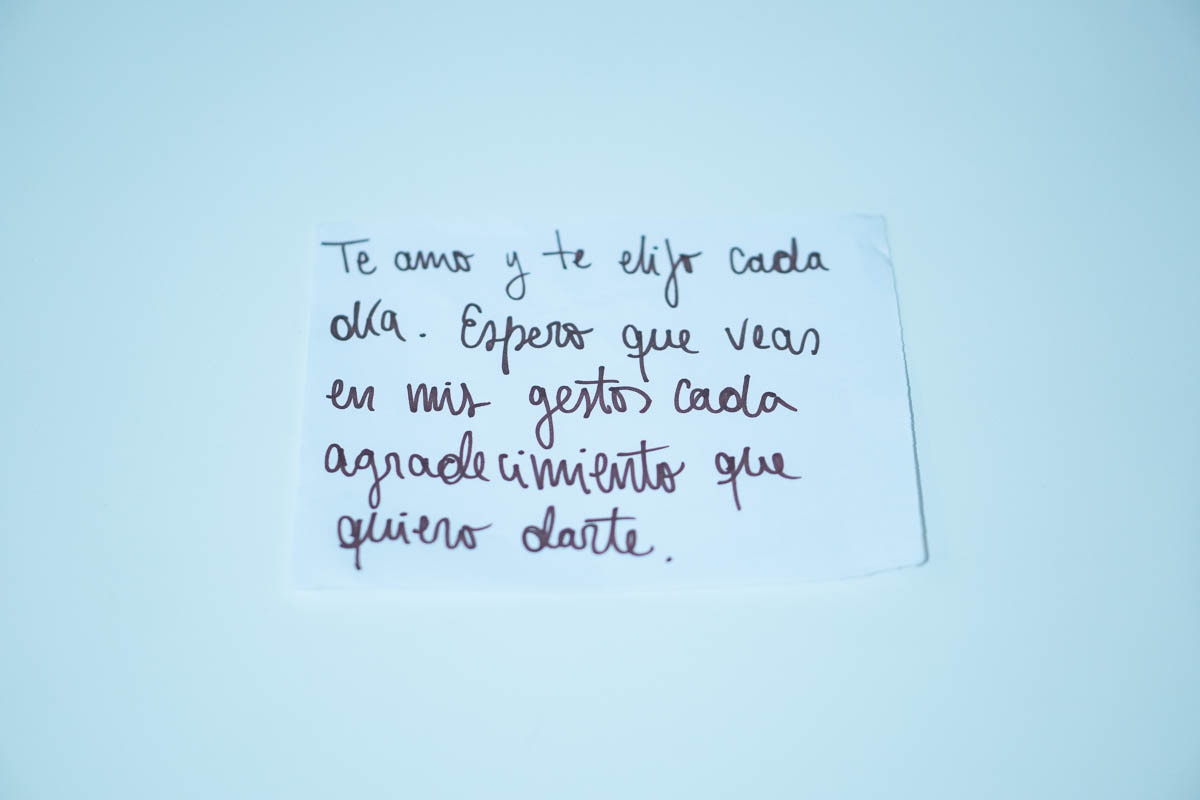 Te amo y te elijo cada
día. Espero que veas
en mis gestos cada
agradecimiento que
quiero darte.